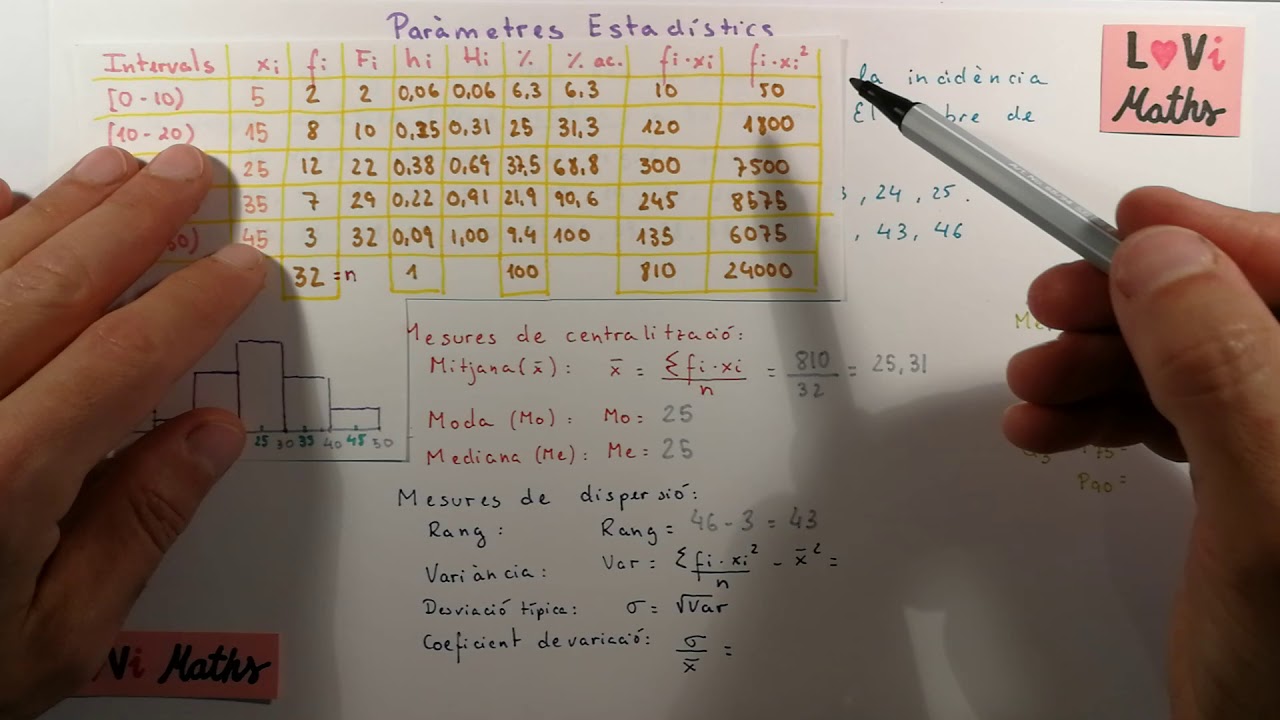 Paràmetres Estadístics
L♥Vi
Maths
Intervals xi fi Fi hi Hi % % ac. fi·xi fi·xi²
[0-10) 5 2 2 0,06 0,06 6.3 6.3 10 50
[10-20) 15 8 10 0,25 0,31 25 31,3 120 1800
25 12 22 0,38 0,69 37,5 68,8 300 7500
35 7 29 0,22 0,91 21,9 90,6 245 8575
0) 45 3 32 0,09 1,00 9.4 100 135 6075
32 = n 1 100 810 24000
la incidència
El de
, 24, 25.
, 43, 46
Mesures de centralització:
Mitjana (x̄): x̄ = Σfi·xi/n = 810/32 = 25,31
Moda (Mo): Mo = 25
Mediana (Me): Me = 25
25 30 35 40 45 50
P90 =
Mesures de dispersió:
Rang: Rang = 46 - 3 = 43
Variància: Var = Σfi·xi²/n - x̄² =
Desviació típica: σ = √Var
Coeficient de variació: σ/x̄ =
Vi Maths